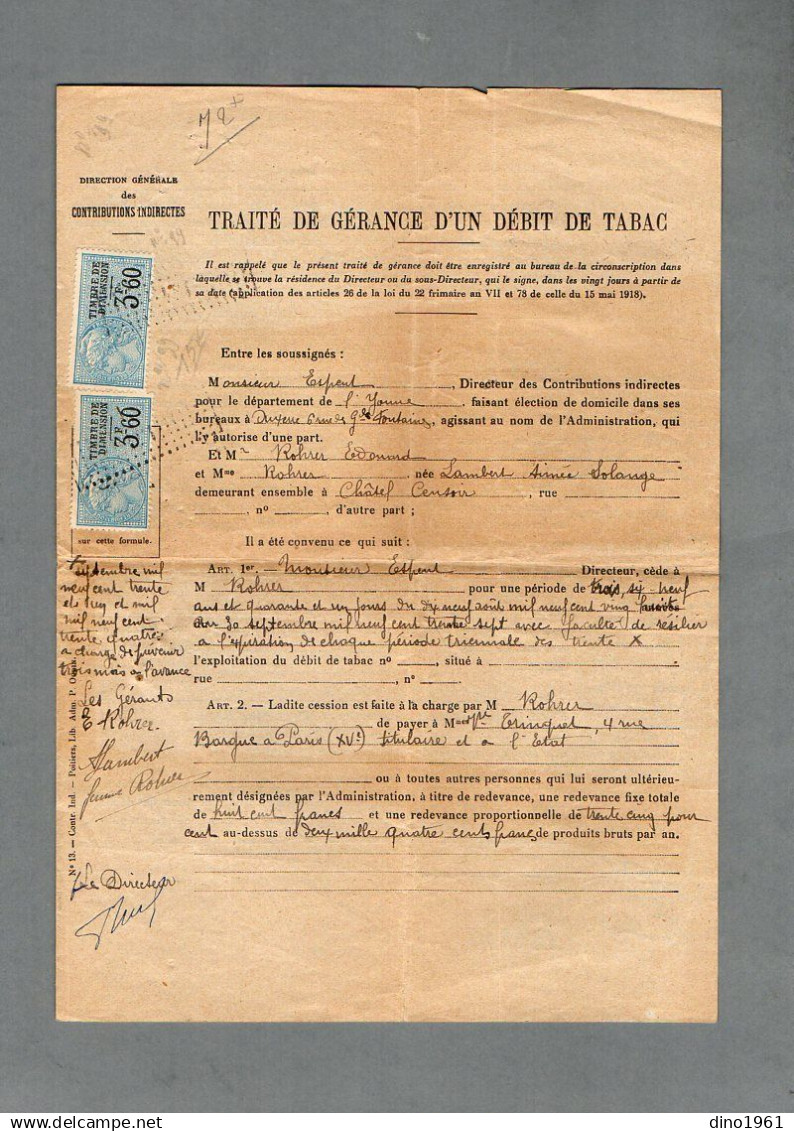 72+
DIRECTION GÉNÉRALE
des
CONTRIBUTIONS INDIRECTES
TRAITÉ DE GÉRANCE D'UN DÉBIT DE TABAC
Il est rappelé que le présent traité de gérance doit être enregistré au bureau de la circonscription dans
laquelle se trouve la résidence du Directeur ou du sous-Directeur, qui le signe, dans les vingt jours à partir de
sa date (application des articles 26 de la loi du 22 frimaire an VII et 78 de celle du 15 mai 1918).
TIMBRE DE
DIMENSION
3F60
TIMBRE DE
DIMENSION
3F60
sur cette formule.
Entre les soussignés :
Monsieur Espent, Directeur des Contributions indirectes
pour le département de l'Yonne, faisant élection de domicile dans ses
bureaux à Auxerre 6 rue des Gdes Fontaines, agissant au nom de l'Administration, qui
l'y autorise d'une part.
Et Mr Rohrer Edouard
et Mme Rohrer, née Lambert Aimée Solange
demeurant ensemble à Châtel Censoir, rue
, no , d'autre part ;
Il a été convenu ce qui suit :
ART. 1er. Monsieur Espent Directeur, cède à
M Rohrer pour une période de trois, six, neuf
ans et quarante et un jours du dix neuf août mil neuf cent vingt
au 30 septembre mil neuf cent trente sept avec faculté de résilier
à l'expiration de chaque période triennale des trente X
l'exploitation du débit de tabac no , situé à
rue , n° .
X septembre mil
neuf cent trente
et un et mil
neuf cent
trente quatre
à charge de prévenir
trois mois à l'avance
Les Gérants
E Rohrer
A Lambert
femme Rohrer
ART. 2. — Ladite cession est faite à la charge par M Rohrer
de payer à Mme Vve Eringuet, 4 rue
Bargue à Paris (XVe) titulaire et à l'Etat
ou à toutes autres personnes qui lui seront ultérieu-
rement désignées par l'Administration, à titre de redevance, une redevance fixe totale
de huit cent francs et une redevance proportionnelle de trente cinq pour
cent au-dessus de deux mille quatre cents francs de produits bruts par an.
Le Directeur
N° 13. — Contr. Ind. — Poitiers, Lib. Adm. P. Oudin.
dino1961